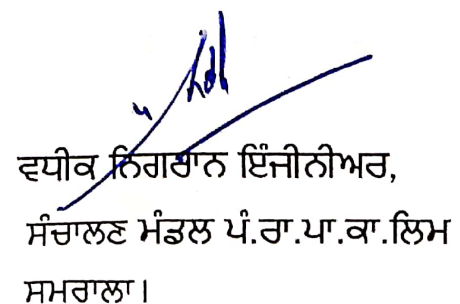 ਵਧੀਕ ਨਿਗਰਾਨ ਇੰਜੀਨੀਅਰ,
ਸੰਚਾਲਣ ਮੰਡਲ ਪੰ.ਰਾ.ਪਾ.ਕਾ.ਲਿਮ
ਸਮਰਾਲਾ।